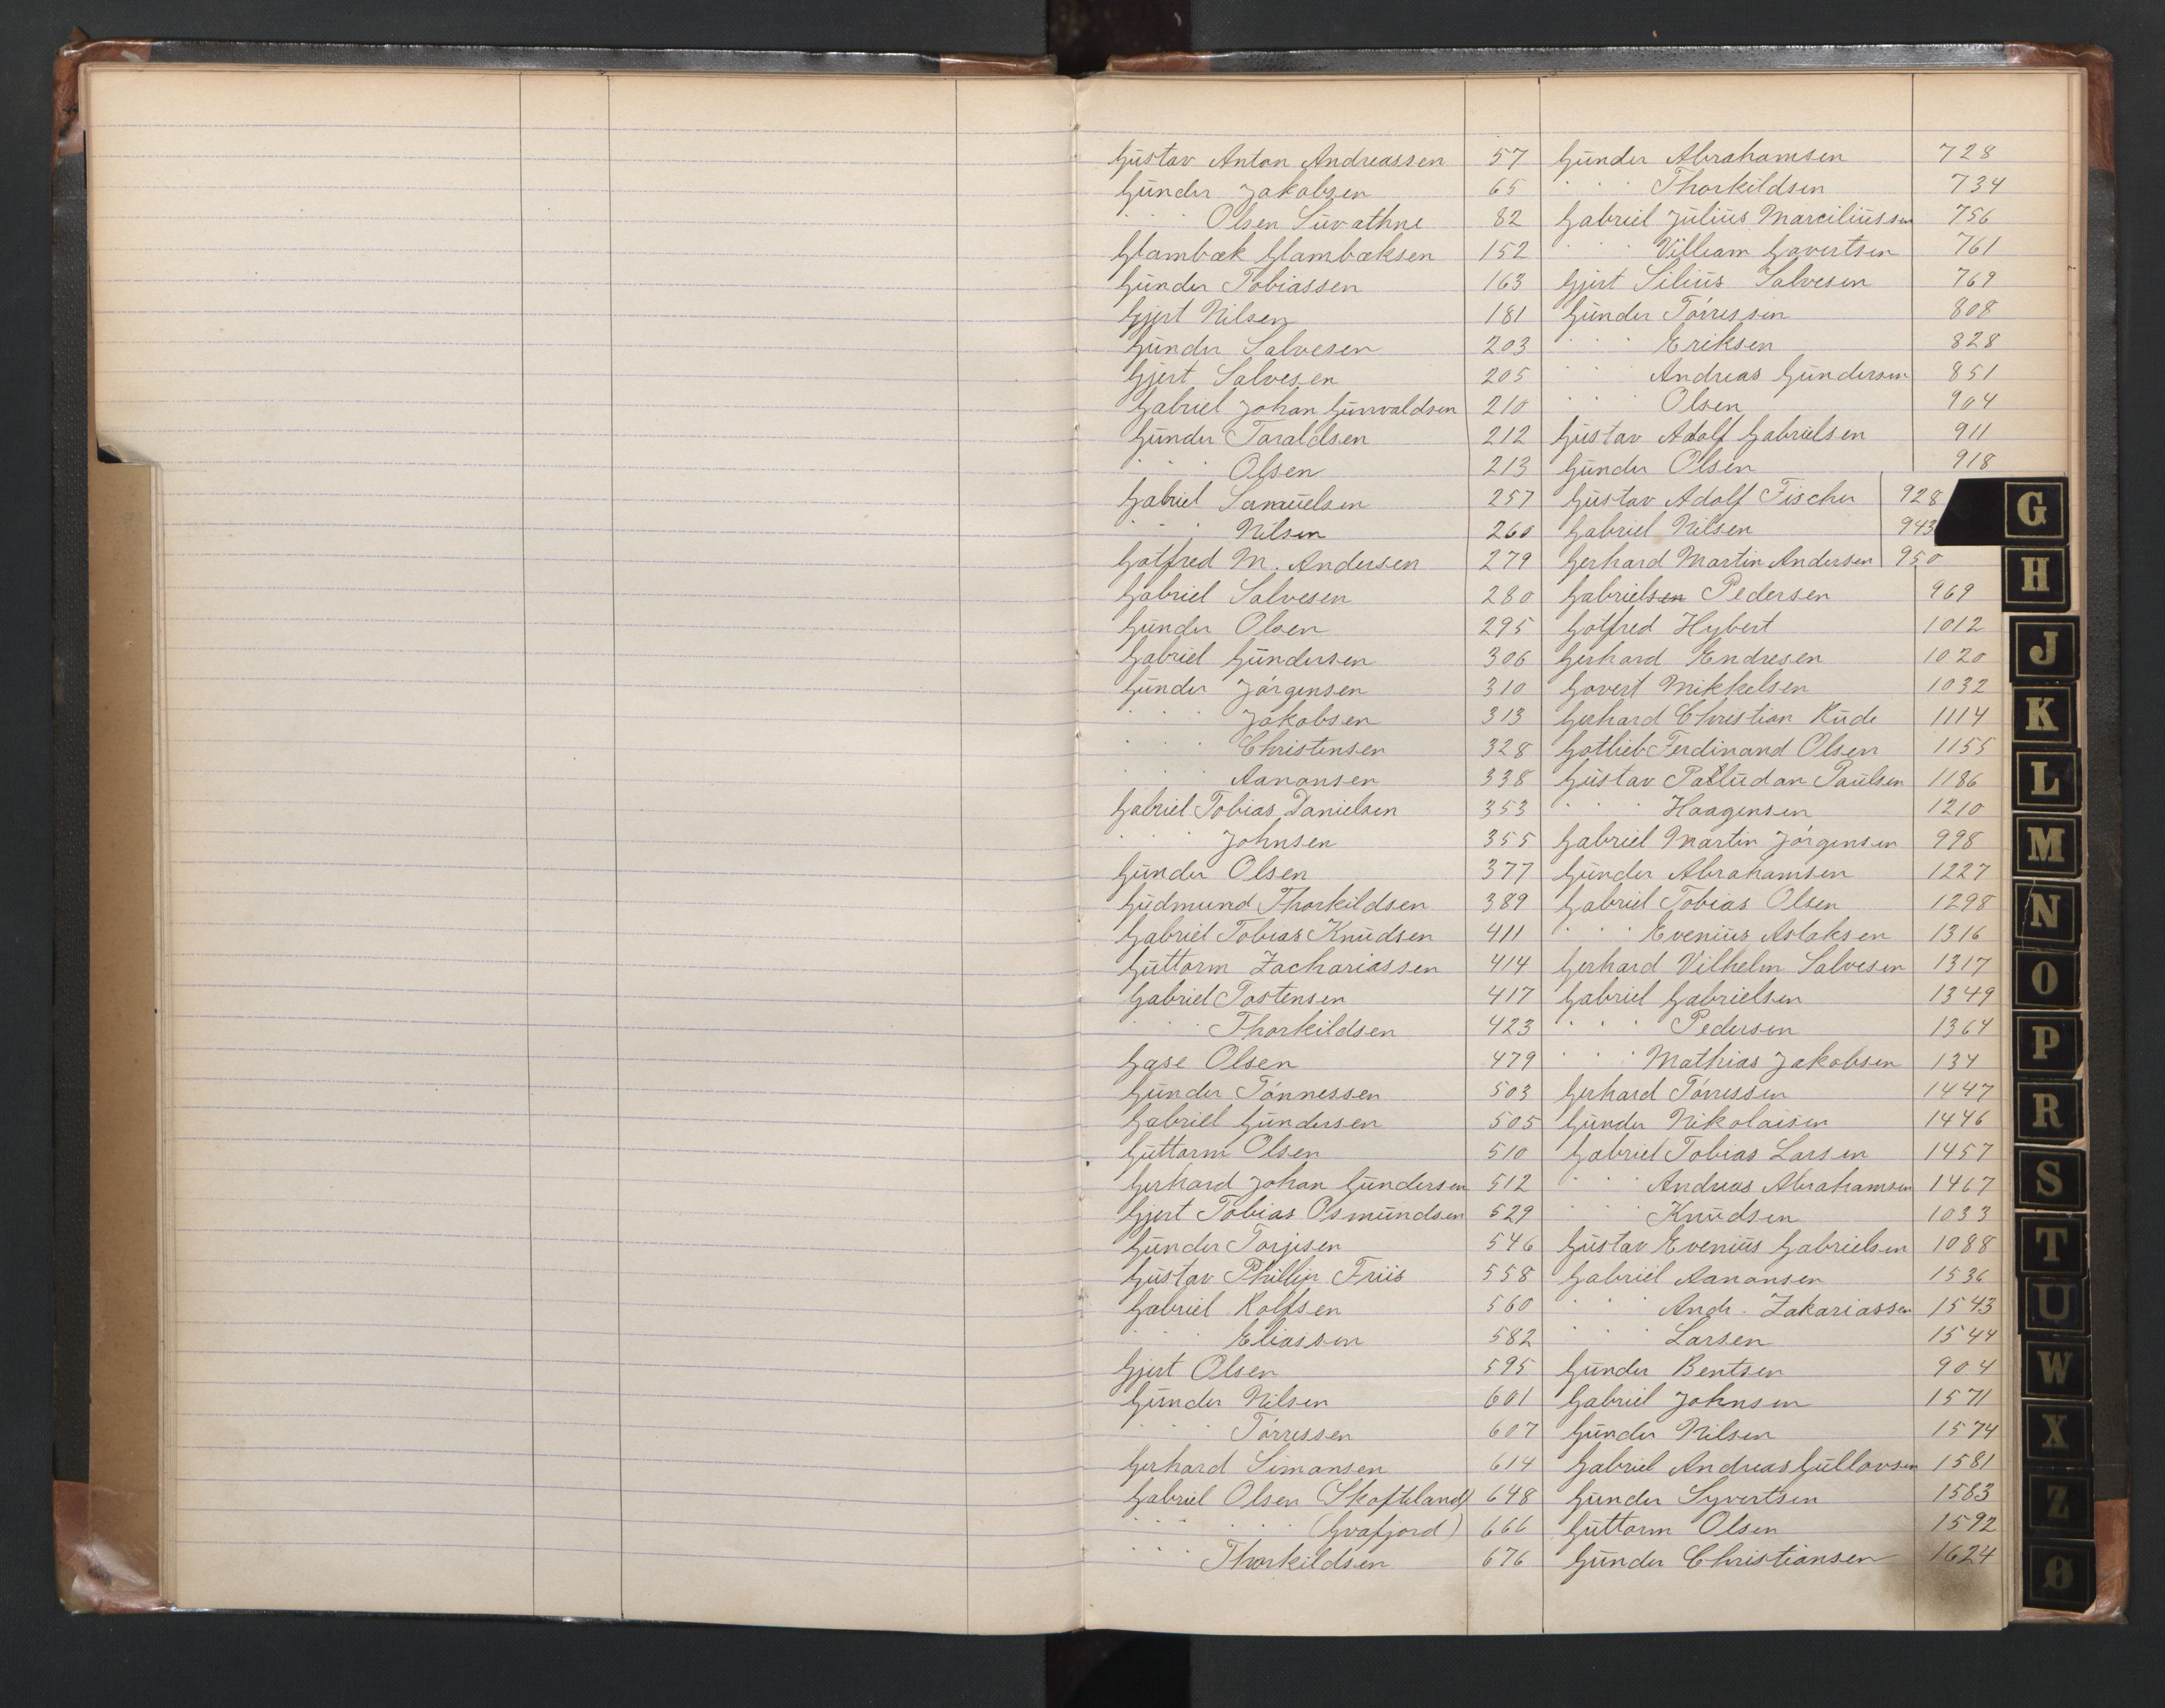 Gustav Anton Andreassen 57
Gunder Jakobsen 65
" " Olsen Survathne 82
Glambæk Glambæksen 152
Gunder Tobiassen 163
Gjert Nilsen 181
Gunder Salvesen 203
Gjert Salvesen 205
Gabriel Johan Gunvaldsen 210
Gunder Taraldsen 212
" " Olsen 213
Gabriel Samuelsen 257
" " Nilsen 260
Gotfred M. Andersen 279
Gabriel Salvesen 280
Gunder Olsen 295
Gabriel Gundersen 306
Gunder Jörgensen 310
" " Jakobsen 313
" " Christensen 328
" " Aanonsen 338
Gabriel Tobias Danielsen 353
" " Johnsen 355
Gunder Olsen 377
Gudmund Thorkildsen 389
Gabriel Tobias Knudsen 411
Guttorm Zachariassen 414
Gabriel Tostensen 417
" " Thorkildsen 423
Gase Olsen 479
Gunder Tönnessen 503
Gabriel Gundersen 505
Guttorm Olsen 510
Gerhard Johan Gundersen 512
Gjert Tobias Osmundsen 529
Gunder Torjesen 546
Gustav Phillip Friis 558
Gabriel Rolfsen 560
" " Eliassen 582
Gjert Olsen 595
Gunder Nilsen 601
" " Törressen 607
Gerhard Simonsen 614
Gabriel Olsen (Skofteland) 648
" " " " (Gvafjord) 666
" " Thorkildsen 676
Gunder Abrahamsen 728
" " Thorkildsen 734
Gabriel Julius Marciliussen 756
" " Villiam Govertsen 761
Gjert Silius Salvesen 769
Gunder Törressen 808
" " Eriksen 828
" " Andreas Gundersen 851
" " Olsen 904
Gustav Adolf Gabrielsen 911
Gunder Olsen 918
Gustav Adolf Fischer 928
Gabriel Nilsen 943
Gerhard Martin Andersen 950
Gabrielsen Pedersen 969
Gotfred Hybert 1012
Gerhard Endresen 1020
Govert Mikkelsen 1032
Gerhard Christian Rude 1114
Gotlieb Ferdinand Olsen 1155
Gustav Palludan Paulsen 1186
" " Haagensen 1210
Gabriel Martin Jörgensen 998
Gunder Abrahamsen 1227
Gabriel Tobias Olsen 1298
" " Evenius Aslaksen 1316
Gerhard Vilhelm Salvesen 1317
Gabriel Gabrielsen 1349
" " Pedersen 1364
" " Mathias Jakobsen 134
Gerhard Törressen 1447
Gunder Nikolaisen 1446
Gabriel Tobias Larsen 1457
" " Andreas Abrahamsen 1467
" " Knudsen 1033
Gustav Evenius Gabrielsen 1088
Gabriel Aanonsen 1536
" " Andr. Zakariassen 1543
" " Larsen 1544
Gunder Bentsen 904
Gabriel Johnsen 1571
Gunder Nilsen 1574
Gabriel Andreas Gullovsen 1581
Gunder Syvertsen 1583
Guttorm Olsen 1592
Gunder Christiansen 1624
G
H
J
K
L
M
N
O
P
R
S
T
U
W
X
Z
Ø